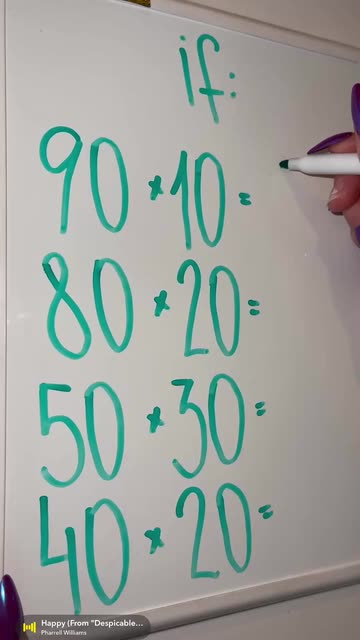 if:
90 × 10 =
80 × 20 =
50 × 30 =
40 × 20 =
Happy (From "Despicable...
Pharrell Williams